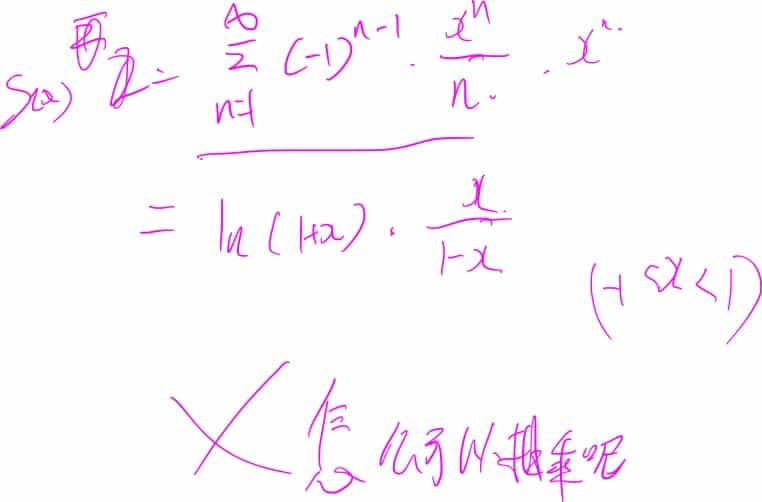 S(x) 再记 = ∑_{n=1}^{∞} (-1)^{n-1} · x^n/n · x^n
= ln(1+x) · x/(1-x) (-1<x<1)
× 怎么可以拆乘呢